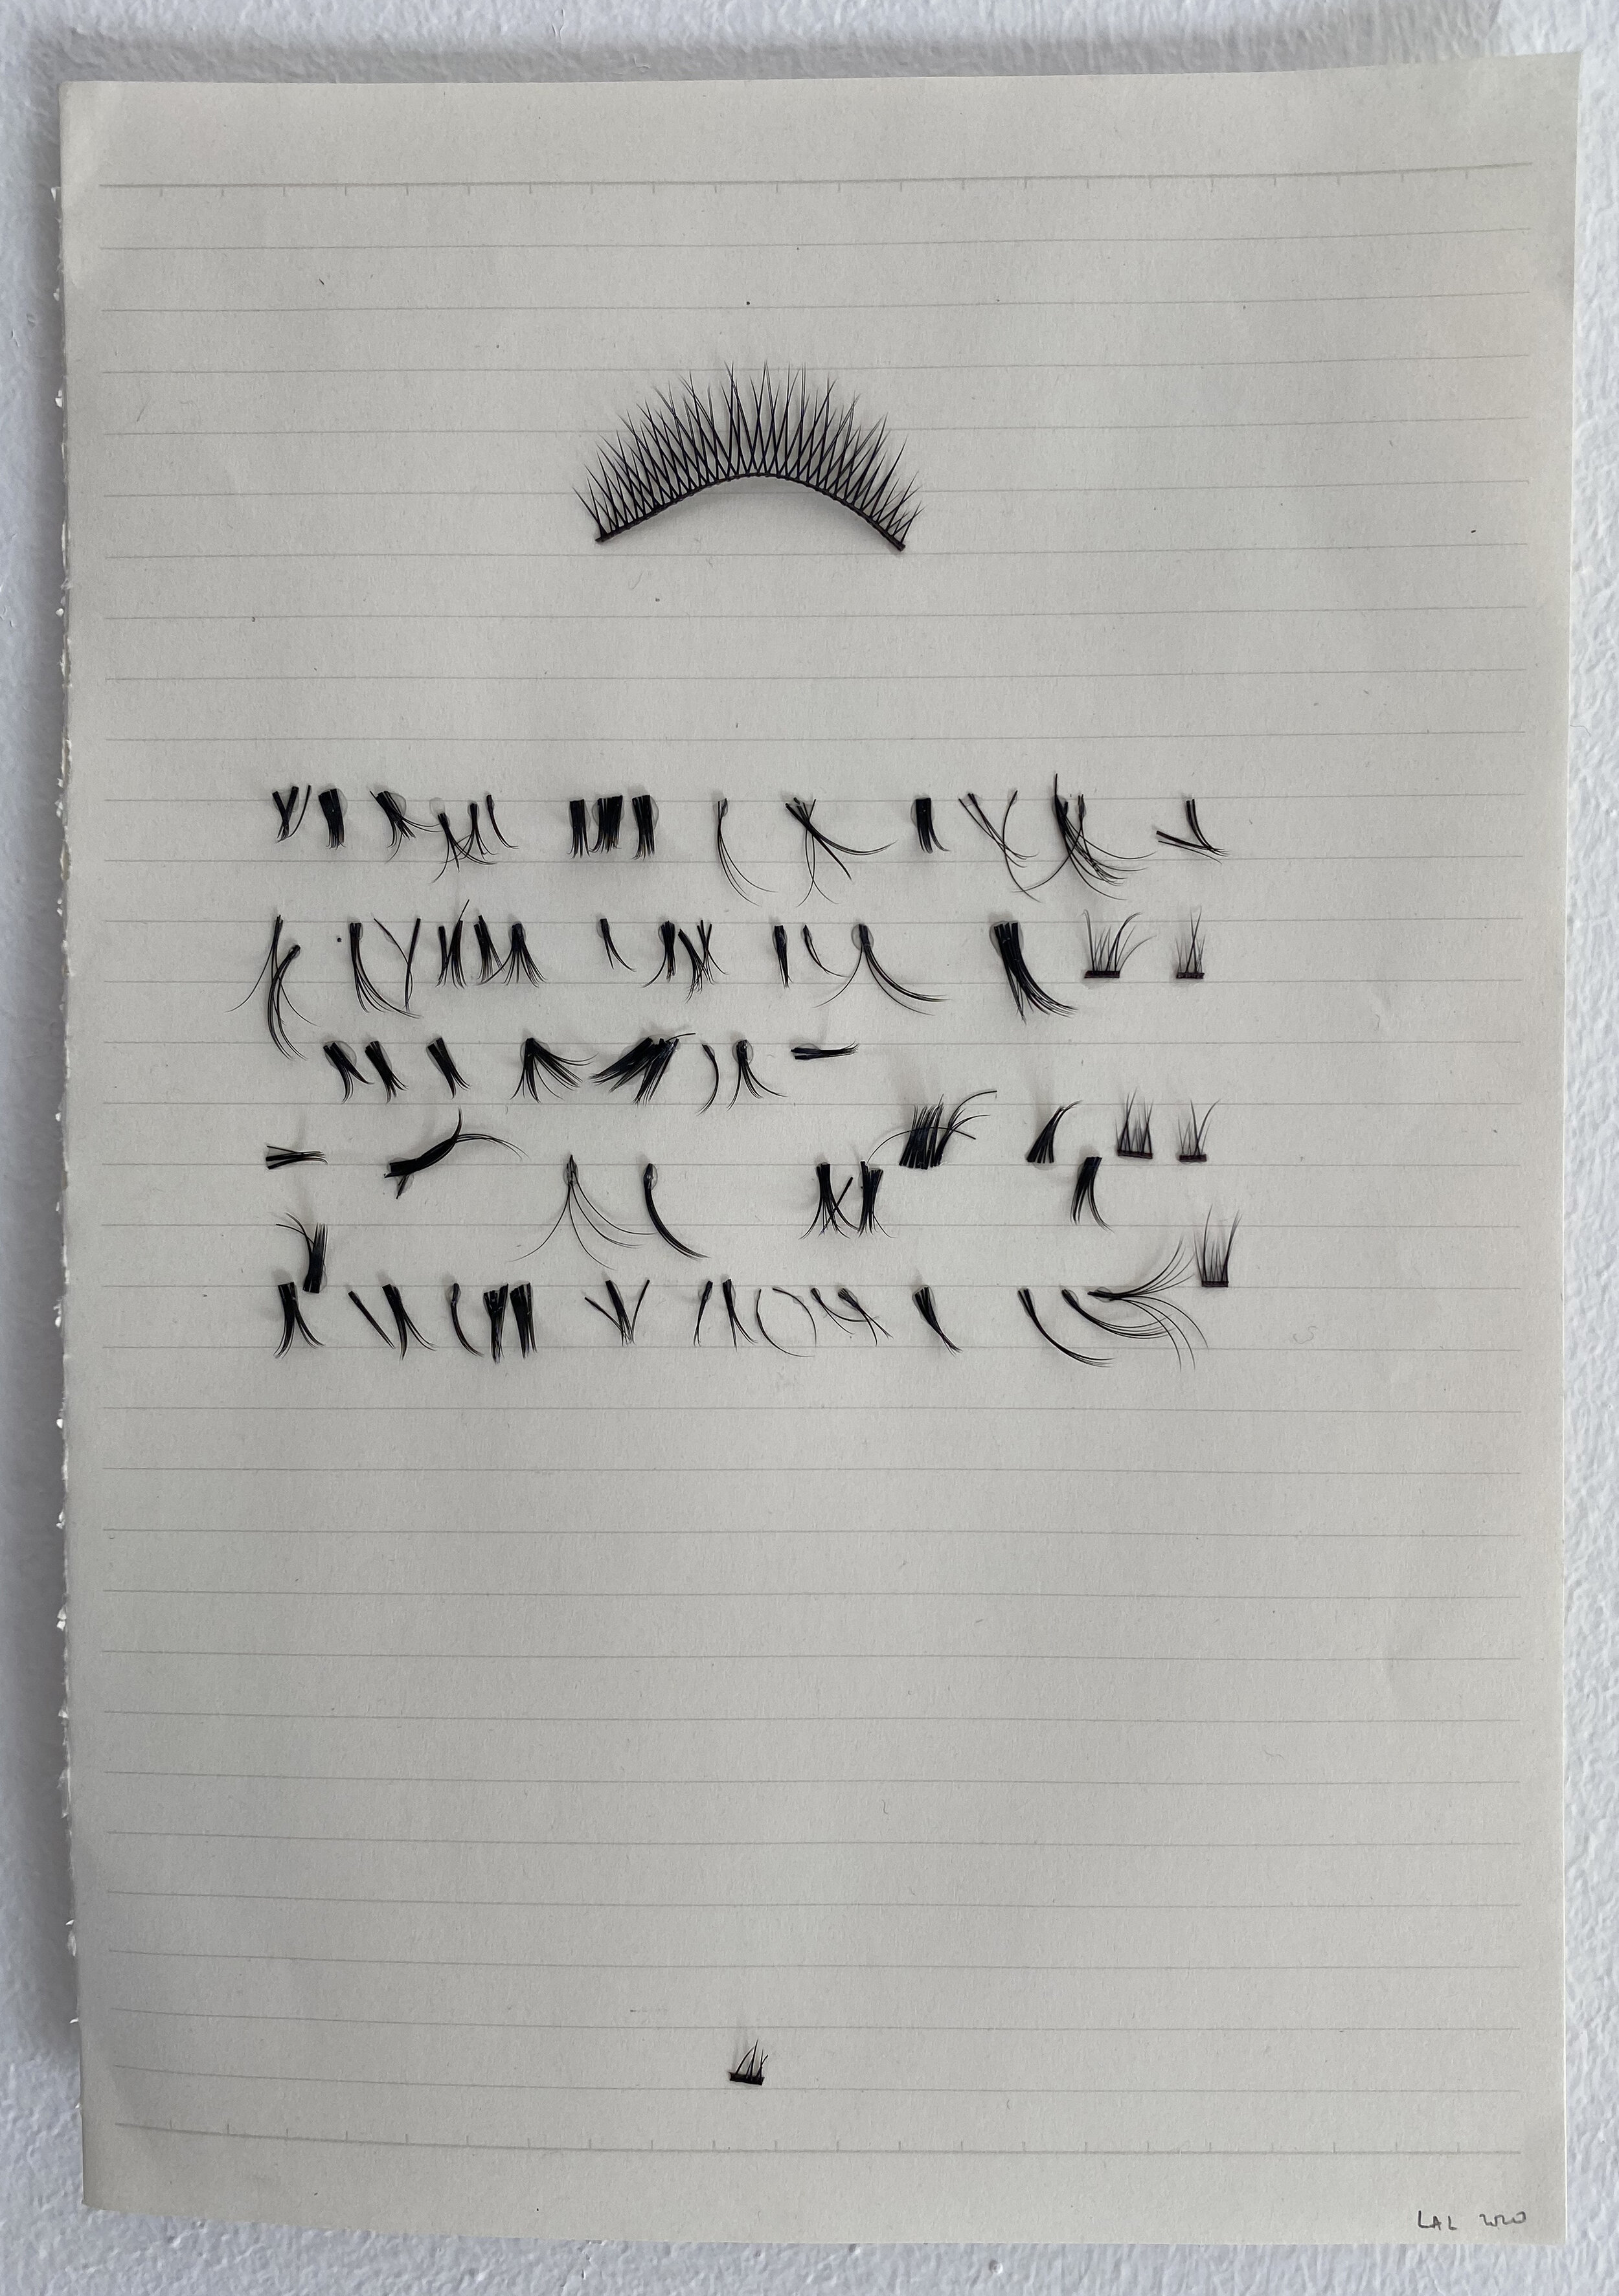 LAL 2020